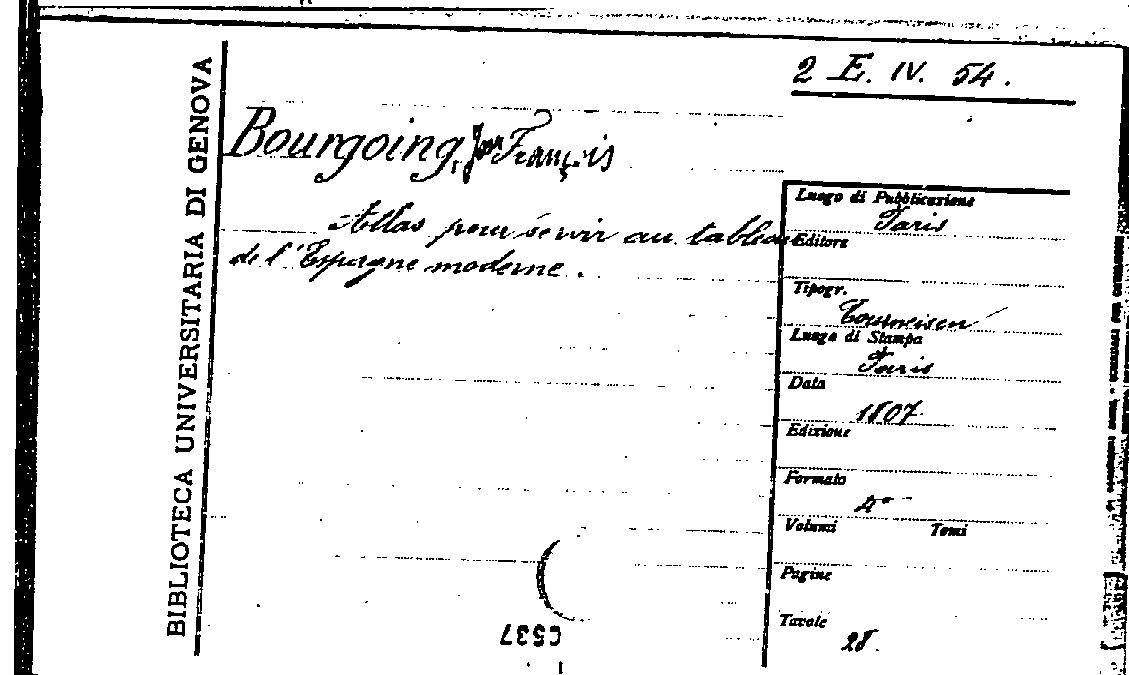 BIBLIOTECA UNIVERSITARIA DI GENOVA
2 E. IV. 54.
Bourgoing, Jean François
Atlas pour servir au tableau
de l'Espagne moderne.
Luogo di Pubblicazione
Paris
Editore
Tipogr.
Tourneisen
Luogo di Stampa
Paris
Data
1807
Edizione
Formato
4°
Volumi Tomi
Pagine
Tavole
28.
C537